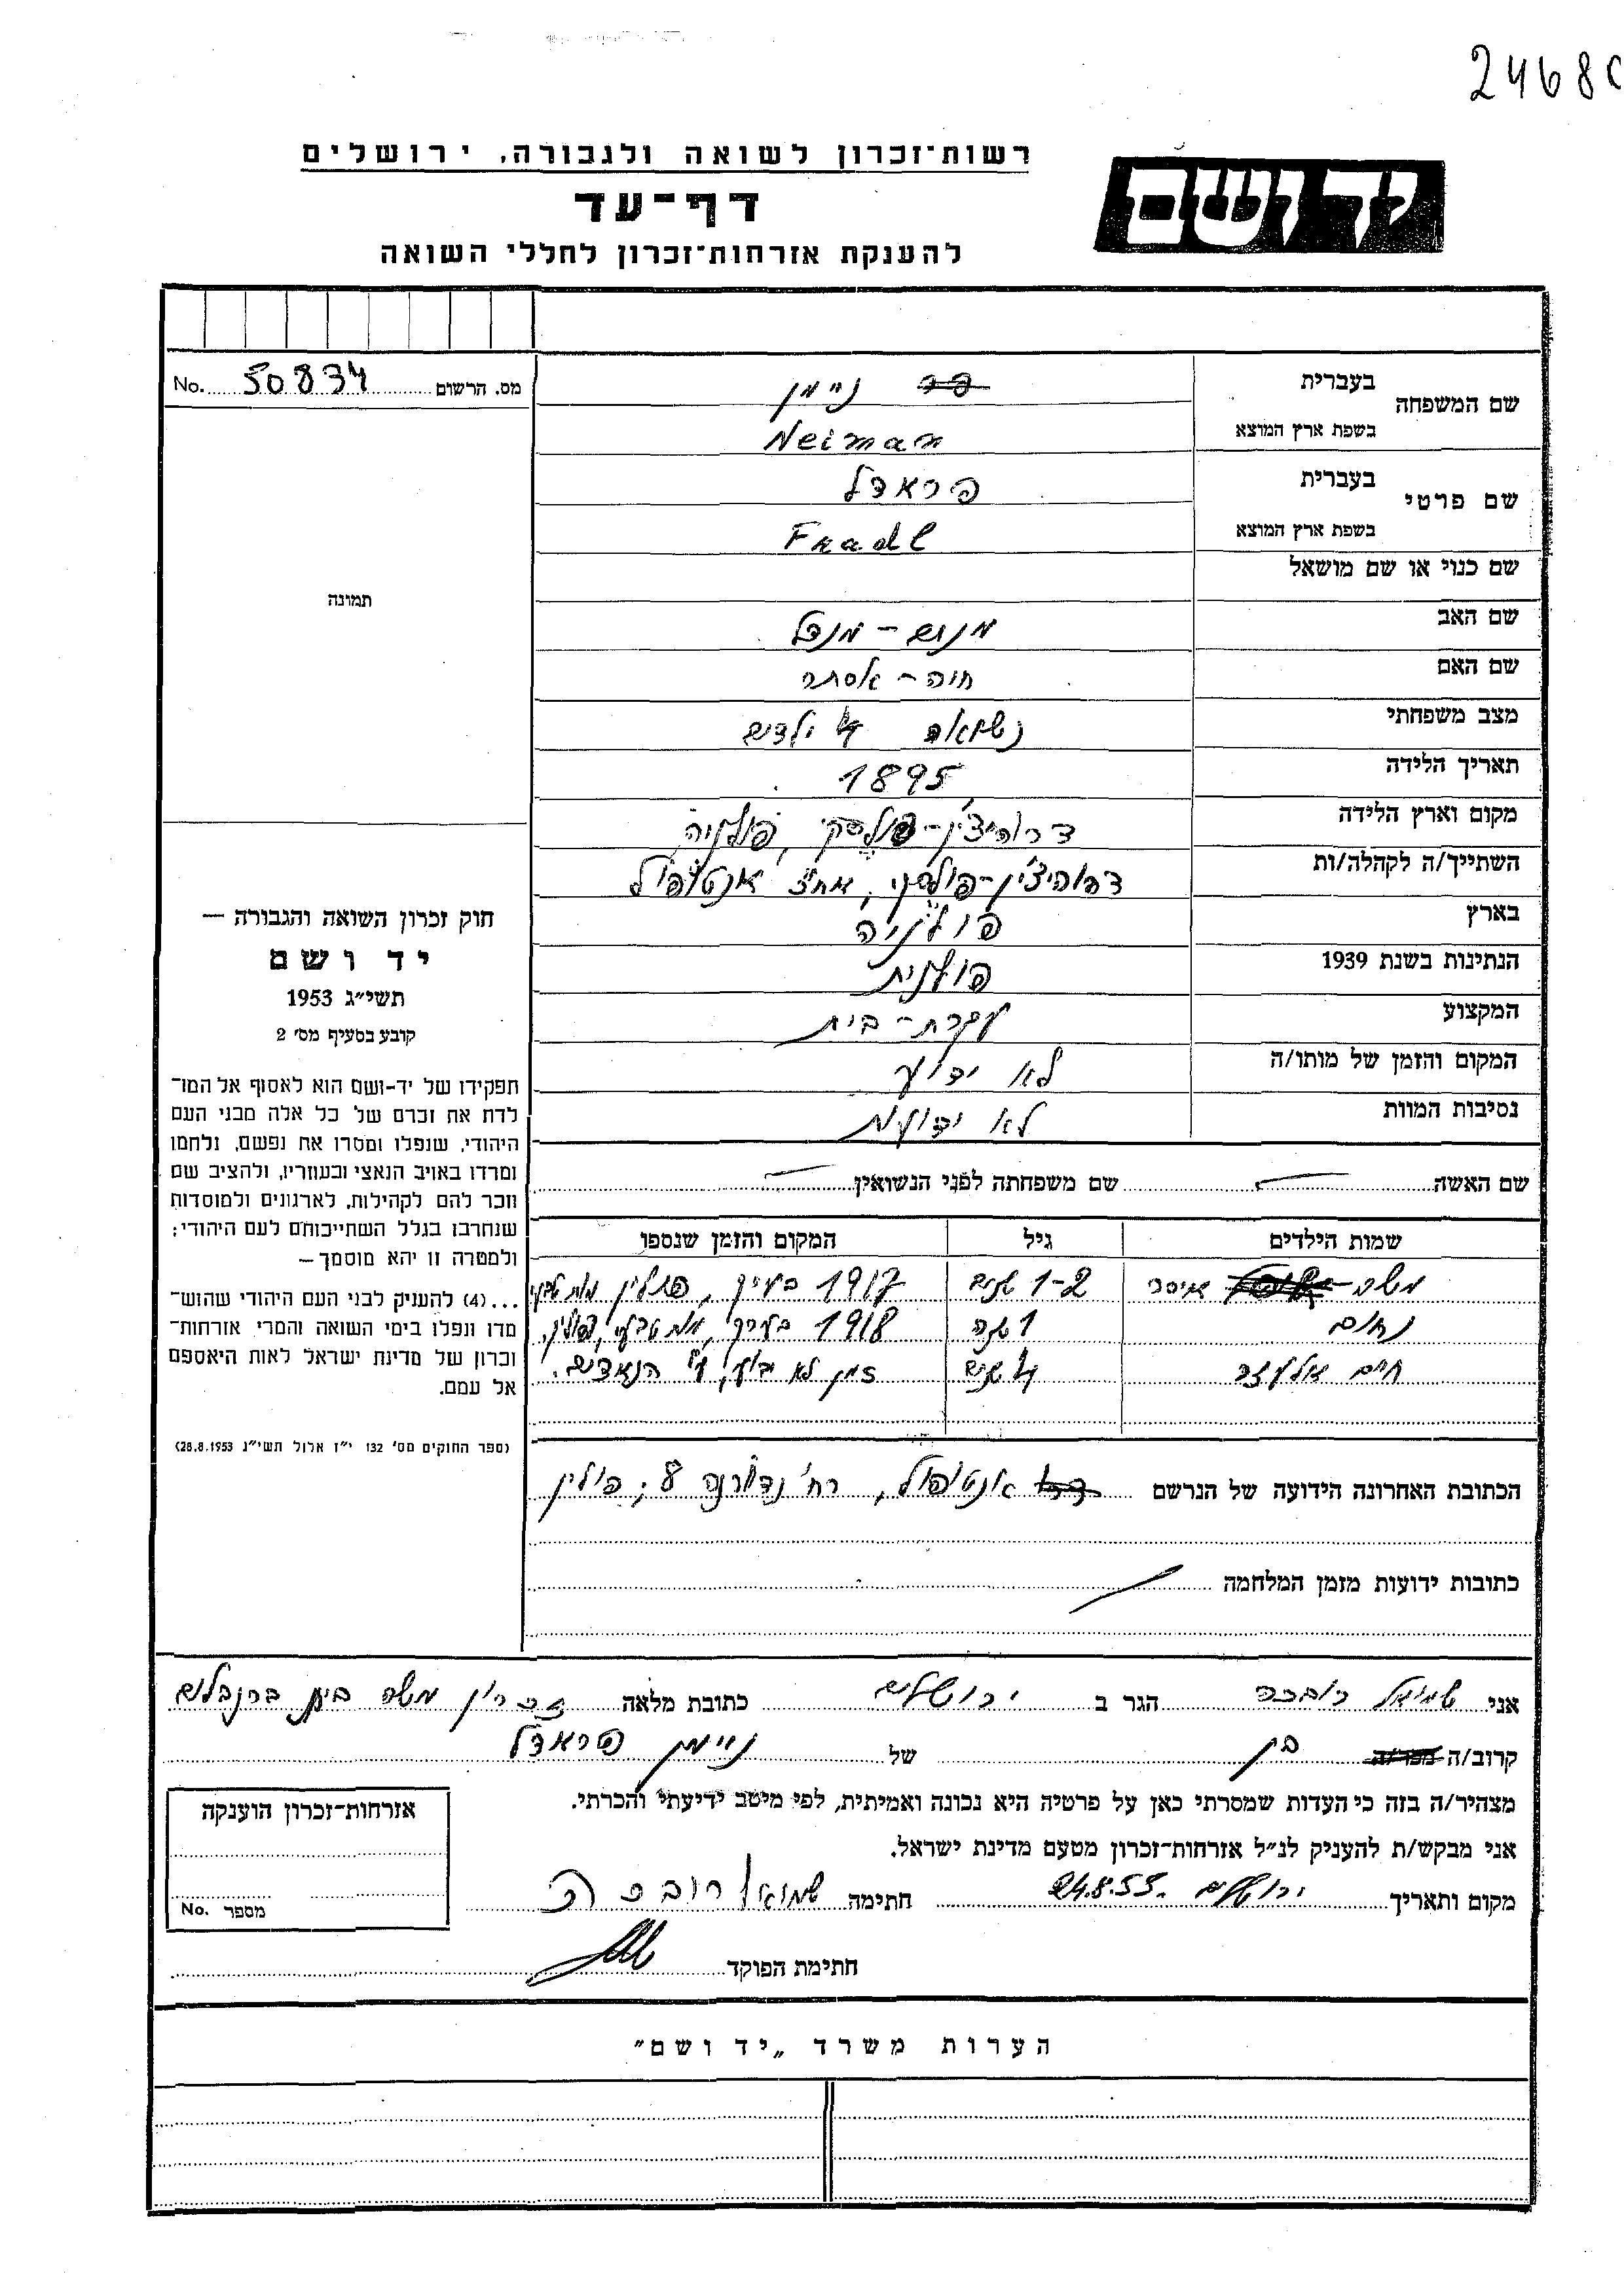 24680
רשות־זכרון לשואה ולגבורה, ירושלים
יד ושם
דף־עד
להענקת אזרחות־זכרון לחללי השואה
מס. הרשום 50834 No.
שם המשפחה בעברית ניימן
בשפת ארץ המוצא Neiman
שם פרטי בעברית פראדל
בשפת ארץ המוצא Fradl
שם כנוי או שם מושאל
שם האב מנוש - מנדל
שם האם חיה - אסתר
מצב משפחתי נשואה 4 ילדים
תאריך הלידה 1895
מקום וארץ הלידה דרוהיצ'ין - פולסקי, פולניה
השתייך/ה לקהלה/ות דרוהיצ'ין - פולסקי, אח"צ אנטופול
בארץ פולניה
הנתינות בשנת 1939 פולנית
המקצוע עקרת - בית
המקום והזמן של מותו/ה לא ידוע
נסיבות המוות לא ידועות
תמונה
חוק זכרון השואה והגבורה —
יד ושם
תשי״ג 1953
קובע בסעיף מס' 2
תפקידו של יד-ושם הוא לאסוף אל המו־
לדת את זכרם של כל אלה מבני העם
היהודי, שנפלו ומסרו את נפשם, נלחמו
ומרדו באויב הנאצי ובעוזריו, ולהציב שם
וזכר להם לקהילות, לארגונים ולמוסדות
שנחרבו בגלל השתייכותם לעם היהודי;
ולמטרה זו יהא מוסמך —
...(4) להעניק לבני העם היהודי שהוש־
מדו ונפלו בימי השואה והמרי אזרחות־
זכרון של מדינת ישראל לאות היאספם
אל עמם.
(ספר החוקים מס' 132 י״ז אלול תשי״ג 28.8.1953)
שם האשה שם משפחתה לפני הנשואין
שמות הילדים גיל המקום והזמן שנספו
משה איסר 1-2 שנים 1917 בערך, פולין מות טבעי
נחום 1 שנה 1918 בערך, מות טבעי, פולין.
חיים אלעזר 4 שנים זמן לא ידוע, ע"י הנאצים.
הכתובת האחרונה הידועה של הנרשם אנטופול, רח' נדוורנה 8, פולין
כתובות ידועות מזמן המלחמה
אני שמואל רובכה הגר ב ירושלים כתובת מלאה זכרון משה בית ברנבלום
קרוב/ה מכר/ה בן של ניימן פראדל
מצהיר/ה בזה כי העדות שמסרתי כאן על פרטיה היא נכונה ואמיתית, לפי מיטב ידיעתי והכרתי.
אני מבקש/ת להעניק לנ״ל אזרחות־זכרון מטעם מדינת ישראל.
מקום ותאריך ירושלים 24.8.55. חתימה שמואל רובכה
חתימת הפוקד
אזרחות־זכרון הוענקה
מספר No.
הערות משרד „יד ושם״